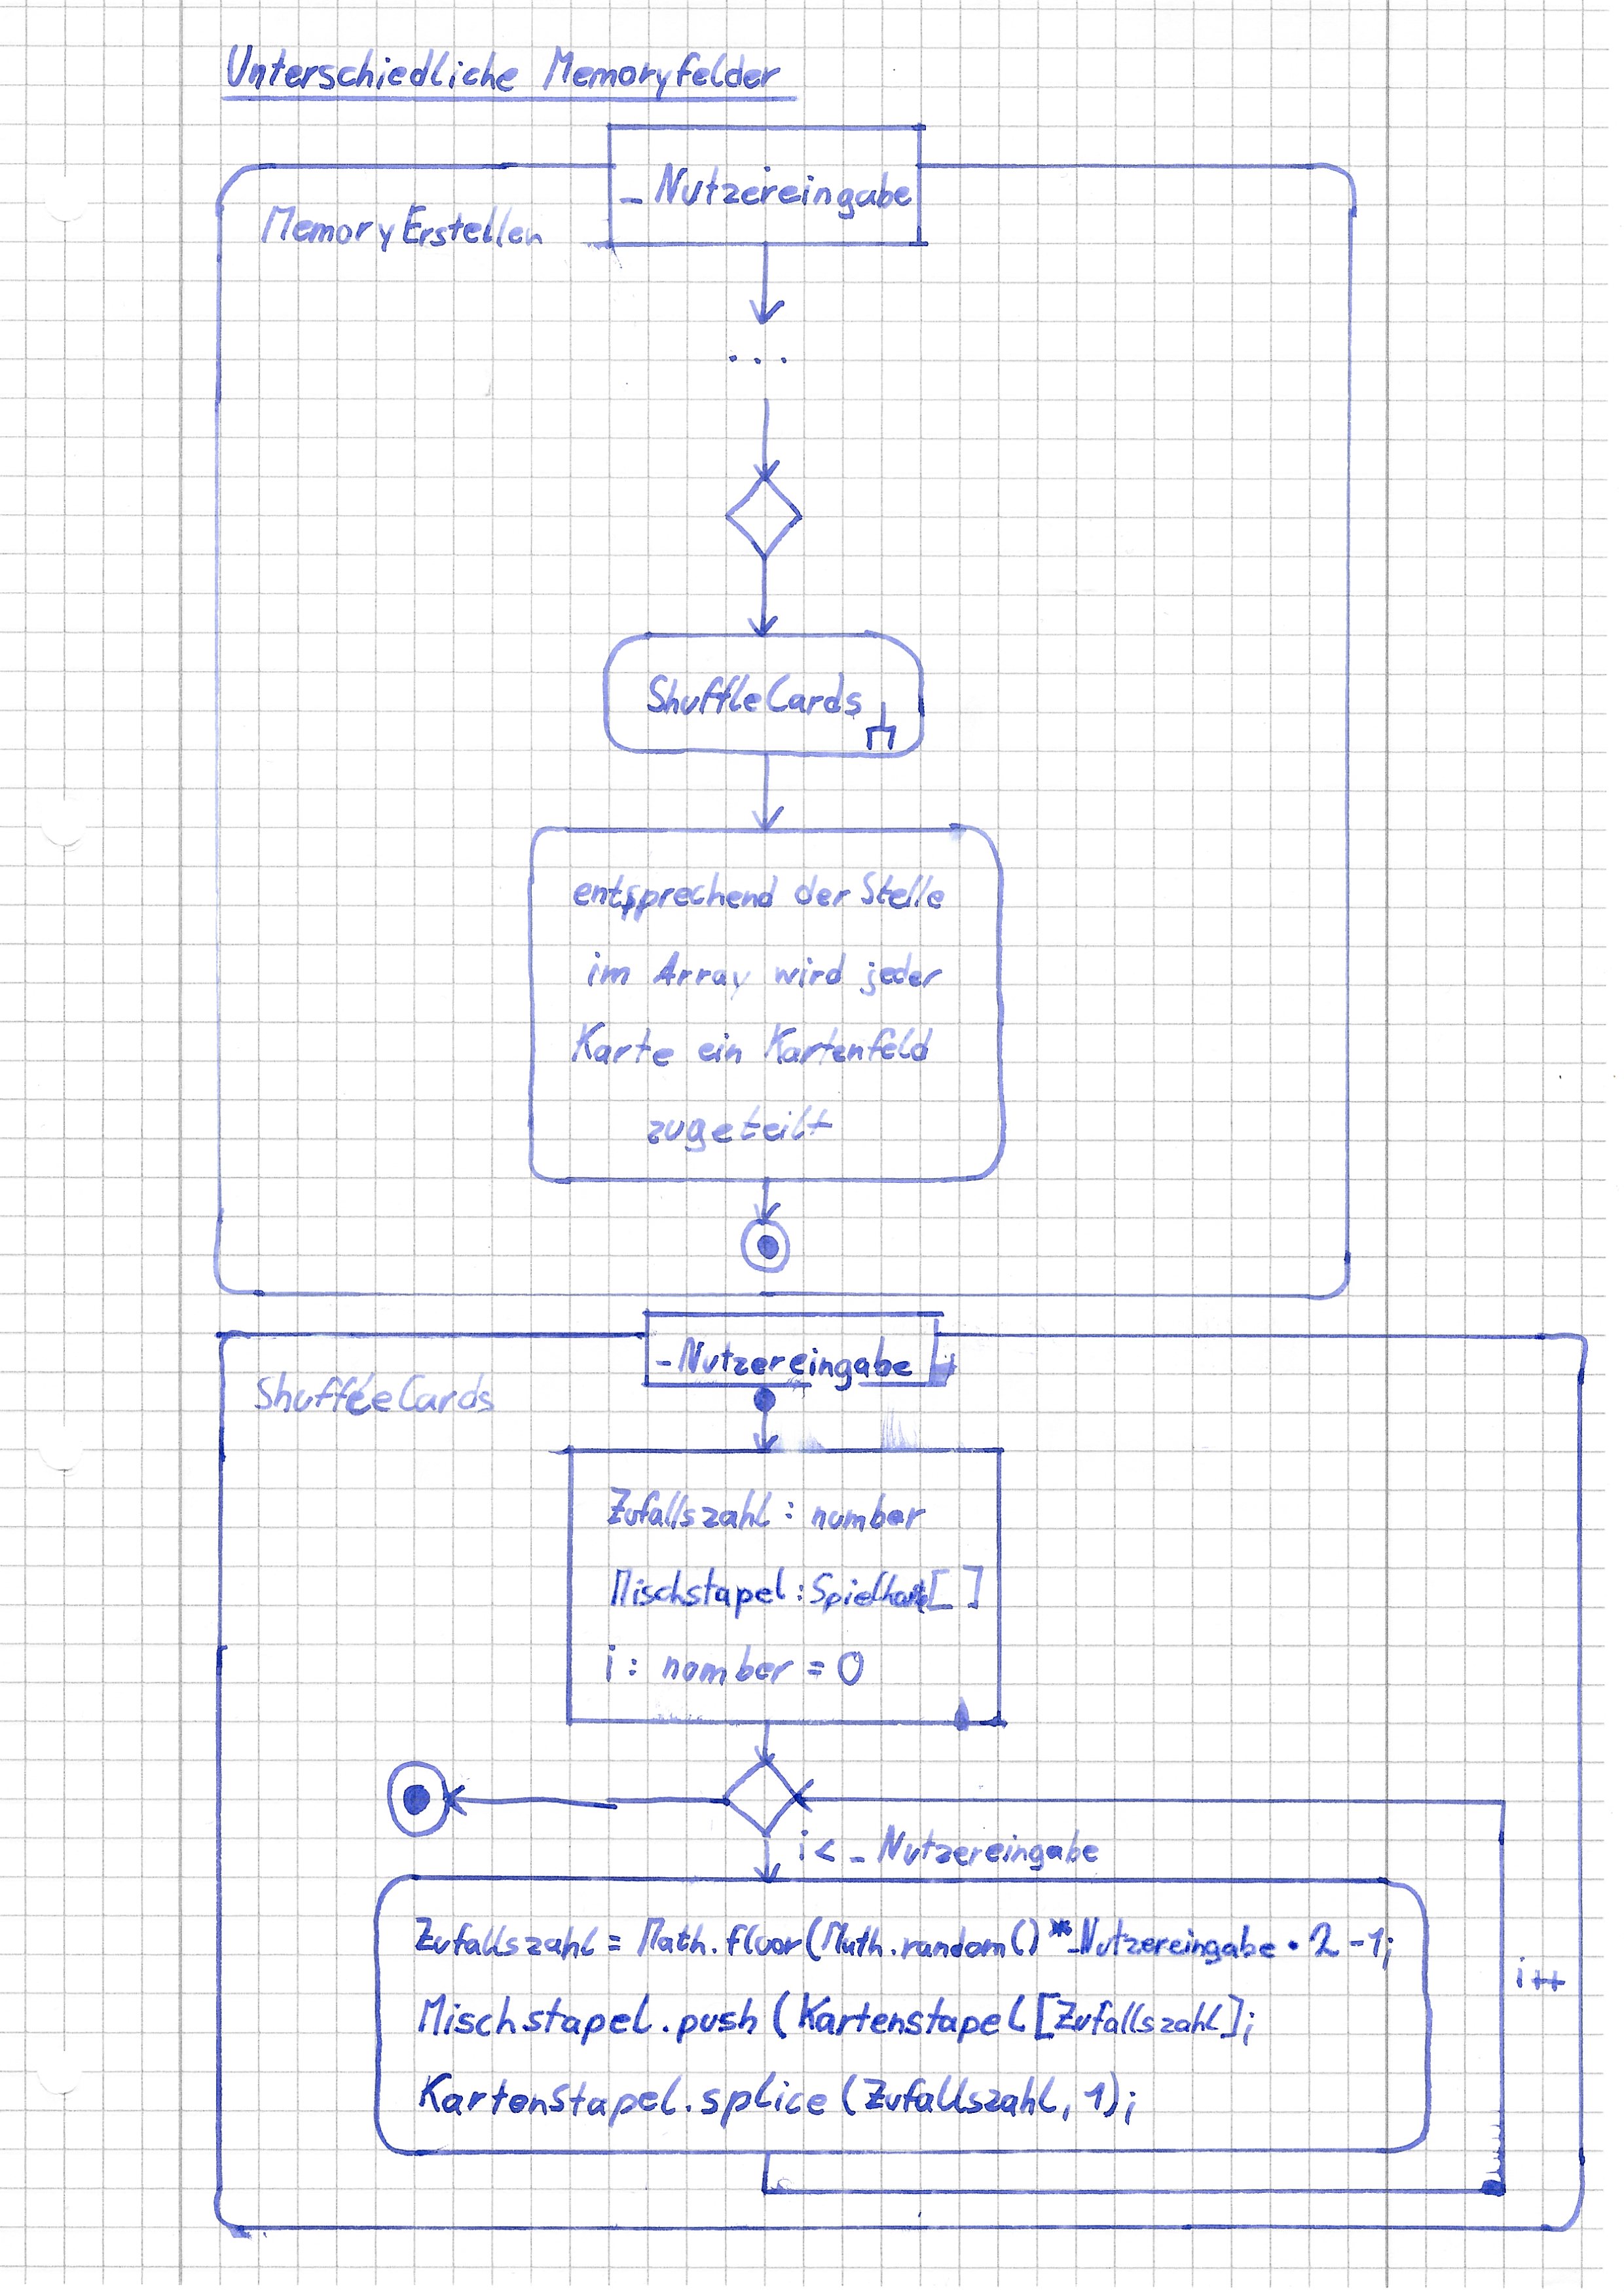 Unterschiedliche Memoryfelder
_Nutzereingabe
MemoryErstellen
...
ShuffleCards
entsprechend der Stelle
im Array wird jeder
Karte ein Kartenfeld
zugeteilt
_Nutzereingabe
ShuffleCards
Zufallszahl: number
Mischstapel: Spielkarte[ ]
i: number = 0
i < _Nutzereingabe
Zufallszahl = Math.floor(Math.random() * _Nutzereingabe • 2 - 1;
Mischstapel.push (Kartenstapel [Zufallszahl];
i++
KartenStapel.splice (Zufallszahl, 1);